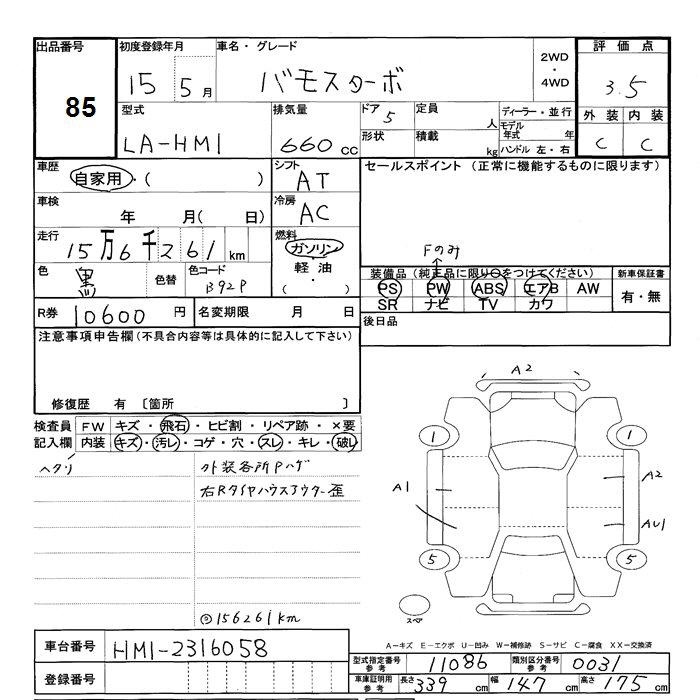 出品番号 初度登録年月 車名・グレード 評価点
85 15 5月 バモスターボ 2WD・4WD 3.5
型式 排気量 ドア 5 定員 人 ディーラー・並行 外装 内装
LA-HM1 660cc 形状 積載 kg モデル年式 年 C C
ハンドル 左・右
車歴 自家用・( ) シフト AT セールスポイント (正常に機能するものに限ります)
車検 年 月( 日) 冷房 AC
走行 15万6千261km 燃料 ガソリン・軽油・( )
Fのみ
色 黒 色替 色コード B92P
装備品(純正品に限り○をつけてください) 新車保証書
PS PW ABS エアB AW 有・無
SR ナビ TV カワ
R券 10600円 名変期限 月 日 後日品
注意事項申告欄(不具合内容等は具体的に記入して下さい)
修復歴 有 〔箇所 〕
検査員記入欄 FW キズ・飛石・ヒビ割・リペア跡・×要
内装 キズ・汚レ・コゲ・穴・スレ・キレ・破レ
ヘタリ 外装各所Pハゲ
右Rタイヤハウスアウター歪
156261km
A2
1 1
A1 A2
AU1
5 5
スペア
A-キズ E-エクボ U-凹み W-補修跡 S-サビ C-腐食 XX-交換済
車台番号 HM1-2316058
登録番号
型式指定番号 参考 11086 類別区分番号 参考 0031
車庫証明用 参考 長さ 339cm 幅 147cm 高さ 175cm